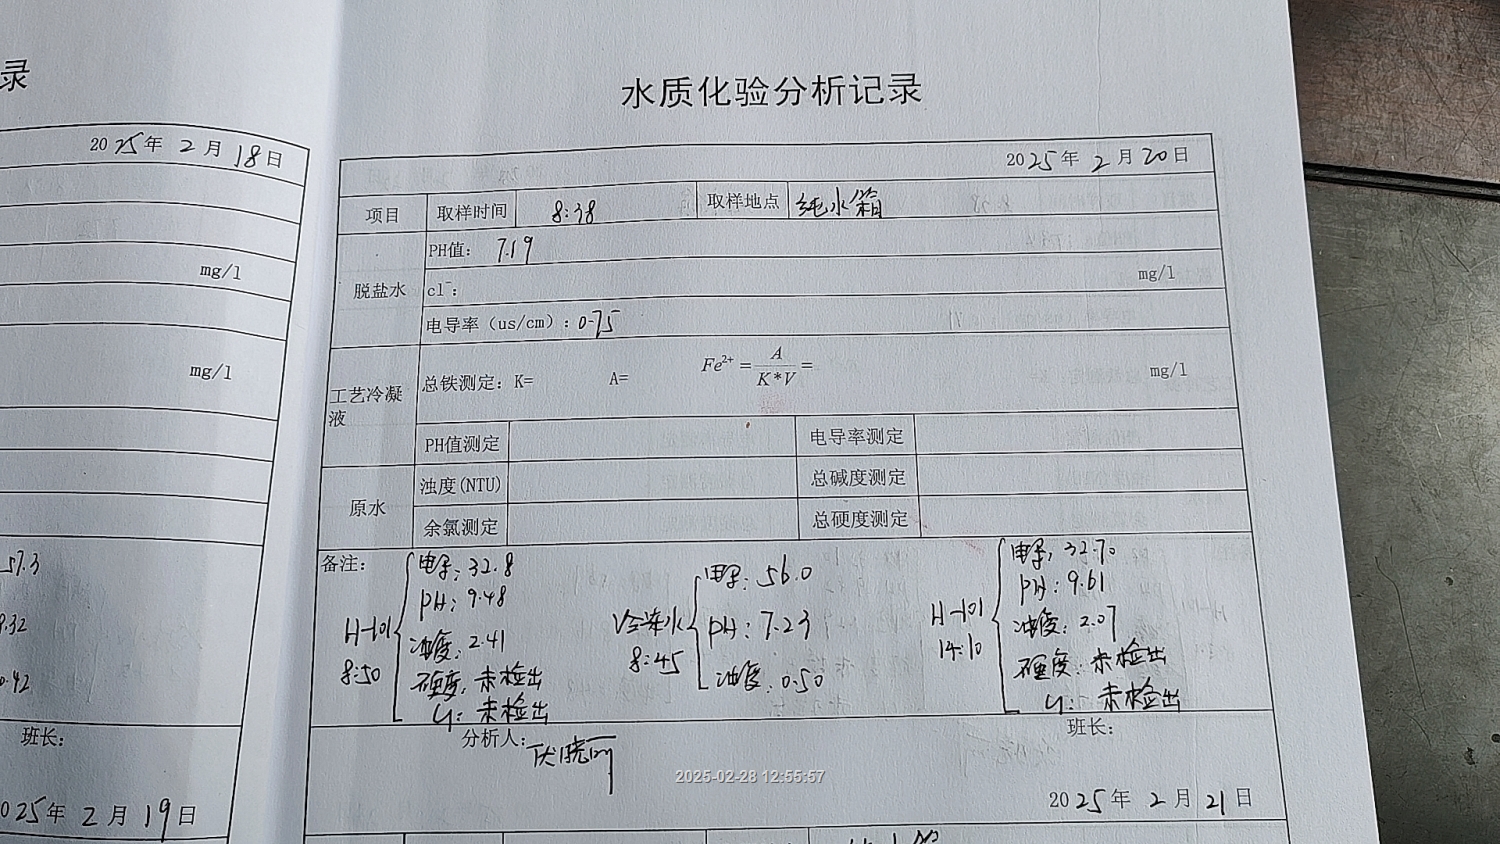 录
2025年 2月 18日
mg/l
mg/l
57.3
9.32
0.42
班长:
2025年 2月 19日
水质化验分析记录
2025年 2月 20日
项目 取样时间 8:38 取样地点 纯水箱
脱盐水
PH值: 7.19
cl⁻: mg/l
电导率(us/cm): 0.75
工艺冷凝液
总铁测定: K= A= Fe²⁺=A/K*V= mg/l
PH值测定 电导率测定
原水
浊度(NTU) 总碱度测定
余氯测定 总硬度测定
备注:
H-101 8:50
电导: 32.8
PH: 9.48
浊度: 2.41
硬度: 未检出
cl: 未检出
冷冻水 8:45
电导: 56.0
PH: 7.23
浊度: 0.50
H-101 14:10
电导: 32.70
PH: 9.61
浊度: 2.07
硬度: 未检出
cl: 未检出
分析人: 班长:
2025-02-28 12:55:57
2025年 2月 21日